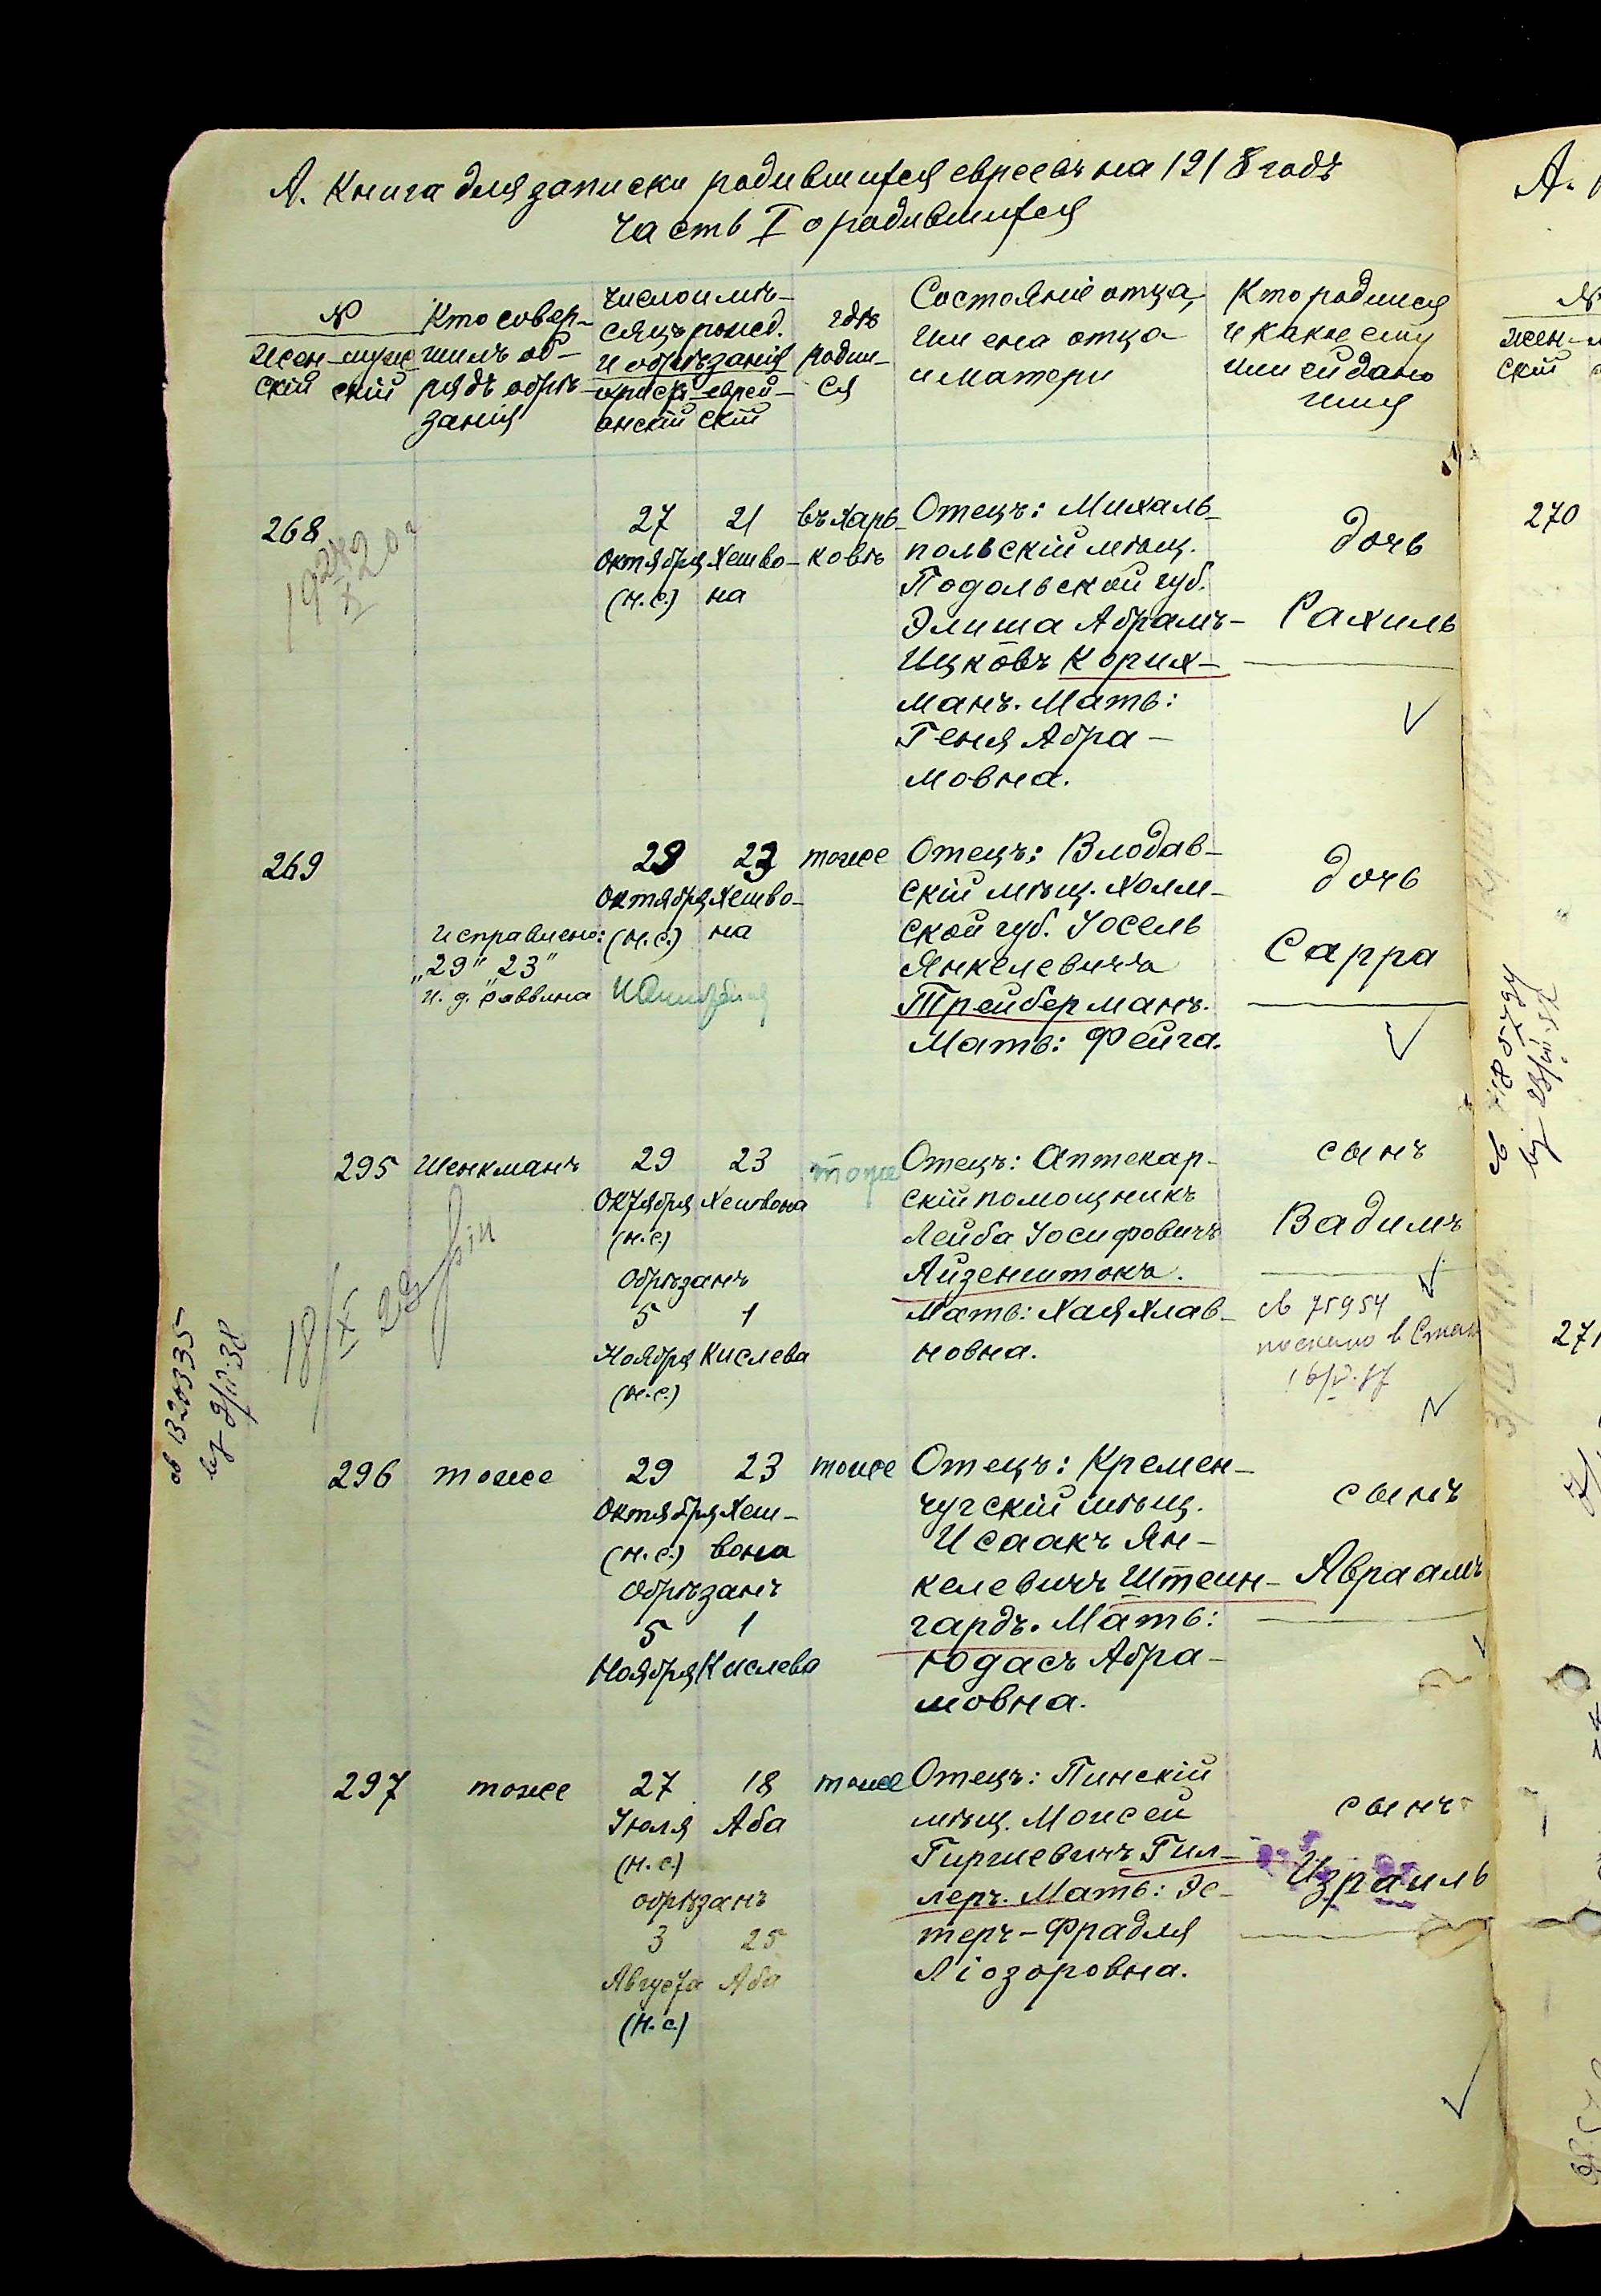 А. Книга для записки родившихся евреевъ на 1918 годъ
Часть I о родившихся
№
женскій
мужескій
Кто совер-
шилъ об-
рядъ обрѣ-
занія
Число и мѣ-
сяцъ рожд.
и обрѣзанія
христі-
анскій
еврей-
скій
гдѣ
родил-
ся
Состояніе отца,
имена отца
и матери
Кто родился
и какое ему
или ей дано
имя
268
27 21
Октября Хешво-
(н.с.) на
въ Харь-
ковѣ
Отецъ: Михаль-
польскій мѣщ.
Подольской губ.
Элиша Абрамъ-
Ицковъ Корих-
манъ. Мать:
Геня Абра-
мовна.
дочь
Рахиль
269
Исправлено:
„29" „23"
И. д. раввина
29 23
Октября Хешво-
(н.с.) на
тоже
Отецъ: Влодав-
скій мѣщ. Холм-
ской губ. Іосель
Янкелевичъ
Трейберманъ.
Мать: Фейга.
дочь
Сарра
295
Шенкманъ
29 23
Октября Хешвона
(н.с)
Обрѣзанъ
5 1
Ноября Кислева
(н.с.)
тоже
Отецъ: Аптекар-
скій помощникъ
Лейба Іосифовичъ
Айзенштокъ.
Мать: Хая Хлав-
новна.
сынъ
Вадимъ
№ 75954
296
тоже
29 23
Октября Хеш-
(н.с.) вона
Обрѣзанъ
5 1
Ноября Кислева
тоже
Отецъ: Кремен-
чугскій мѣщ.
Исаакъ Ян-
келевичъ Штейн-
гардъ. Мать:
Юдасъ Абра-
мовна.
сынъ
Авраамъ
297
тоже
27 18
Іюля Аба
(н.с.)
обрѣзанъ
3 25
Августа Аба
(н.с.)
тоже
Отецъ: Пинскій
мѣщ. Моисей
Гиршевичъ Гил-
леръ. Мать: Эс-
теръ-Фрадля
Ліозоровна.
сынъ
Израиль
270